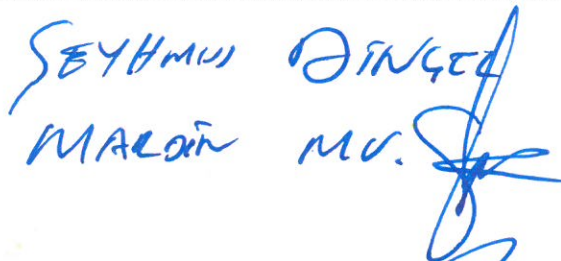 ŞEYHMUS DİNÇEL
MARDİN MV.